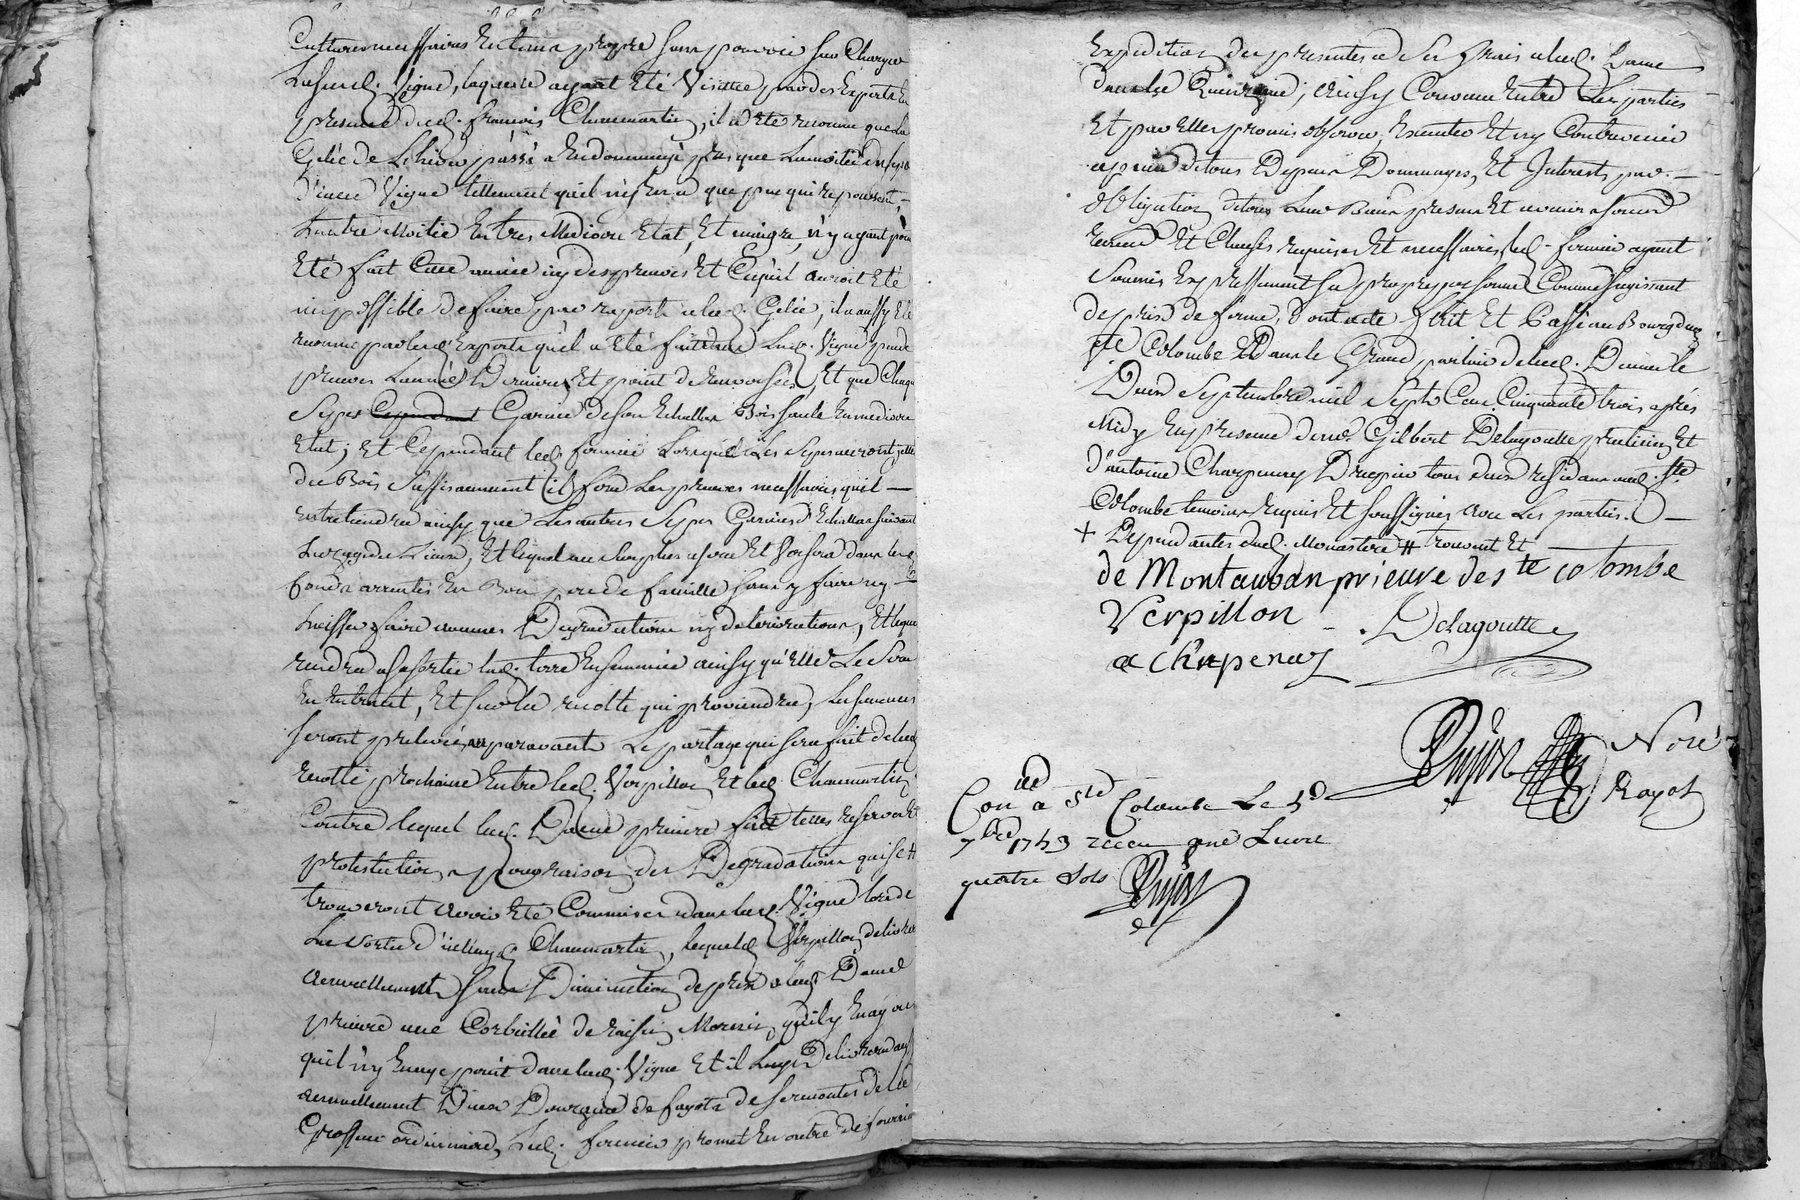 Cultures necessaires En tems propre sans pouvoir sur Charger
Lasusd. Vigne, laquelle ayant Eté Visittée par des Experts En
presence dud. françois Chaumartin, il a Eté reconnu que La
Gelée de L'hiver passé a Endommagé plus que La moitié des seps
d'icelle Vigne tellement quil n'y En a que peu qui repoussent,
Lautre Moitié En tres Mediocre Etat, Et maigre, n'y ayant point
Eté fait Cette année ny des preuves Et Cequil auroit Eté
impossible de faire par raport a lad. Gelée, il a aussy Eté
reconnu par lesd. Experts quil a Eté fait dans Lad. Vigne
preuves Lannée Derniere Et point de Renversées, Et que Chaque
Seps Cependant Garnie de son Echallas Bois saule En mediocre
Etat; Et Cependant led. fermier Lorsque Les Seps auront jetté
du Bois Suffisamment il fera Les preuves necessaires quil
entretiendra ainsy que Les autres Seps Garnies d'Echallas suivant
Lusage du Lieux, Et lequel au surplus usera Et Versera dans lesd.
fonds arrentés En Bon pere de famille sans y faire ny
Laisser faire aucunes Degradations ny deteriorations, Et laquelle
rendra a sa sortie lad. terre Ensemencée ainsy qu'Elle Le Sera
En Entrant, Et sur la recolte qui proviendra, Les semences
seront prelevées auparavant Le partage qui sera fait de lad.
recolte prochaine Entre led. Verpillon Et led. Chaumartin
Contre lequel lad. Dame prieure fait telles reserves Et
protestations pour raison des Degradations qui se
trouveront avoir Eté Commises dans lad. Vigne lors de
La sortie d'icelluy Chaumartin, lequel d. Verpillon delivrera
annuellement sans Diminution de prix a lad. Dame
prieure une Corbeillée de raisin Mornin, quil y En ay ou
quil n'y En aye point dans lad. Vigne Et il Luy Delivrera aussy
annuellement Deux Douzaine de fagots de sermentes de led.
Grosseur ordinaire, Led. fermier promet En outre de fournir
Expedition des presentes a Ses frais a lad. Dame
dans La Quinzaine; ainsy Convenu Entre Les parties
Et par Elles promis observer, Executer Et ny Contrevenir
a peine de tous Depens Dommages, Et Interests, par
obligation de tous Leurs Biens presens Et avenir
renonc. Et Clauses requises Et necessaires, led. fermier ayant
soumis Expressement sa propre personne Comme s'agissant
de prix de ferme, dont acte fait Et Passé au Bourg de
Ste Colombe Et Dans le Grand parloir de lad. Dame le
Deux Septembre mil Sept Cent Cinquante trois après
Midy En presence de me. Gilbert Delagoutte praticien Et
d'antoine Charpenay Drapier tous deux residants aud. Ste
Colombe temoins requis Et soussignés avec Les parties.
+ Dependantes dud. Monastere # trouvent Et
de Montauban prieure de ste colombe
Verpillon
Delagoutte
a chapenay
Dujon Nore
Royal
Con. a Ste Colombe Le 5e
7bre 1753 receu une Livre
quatre Sols
Dujon